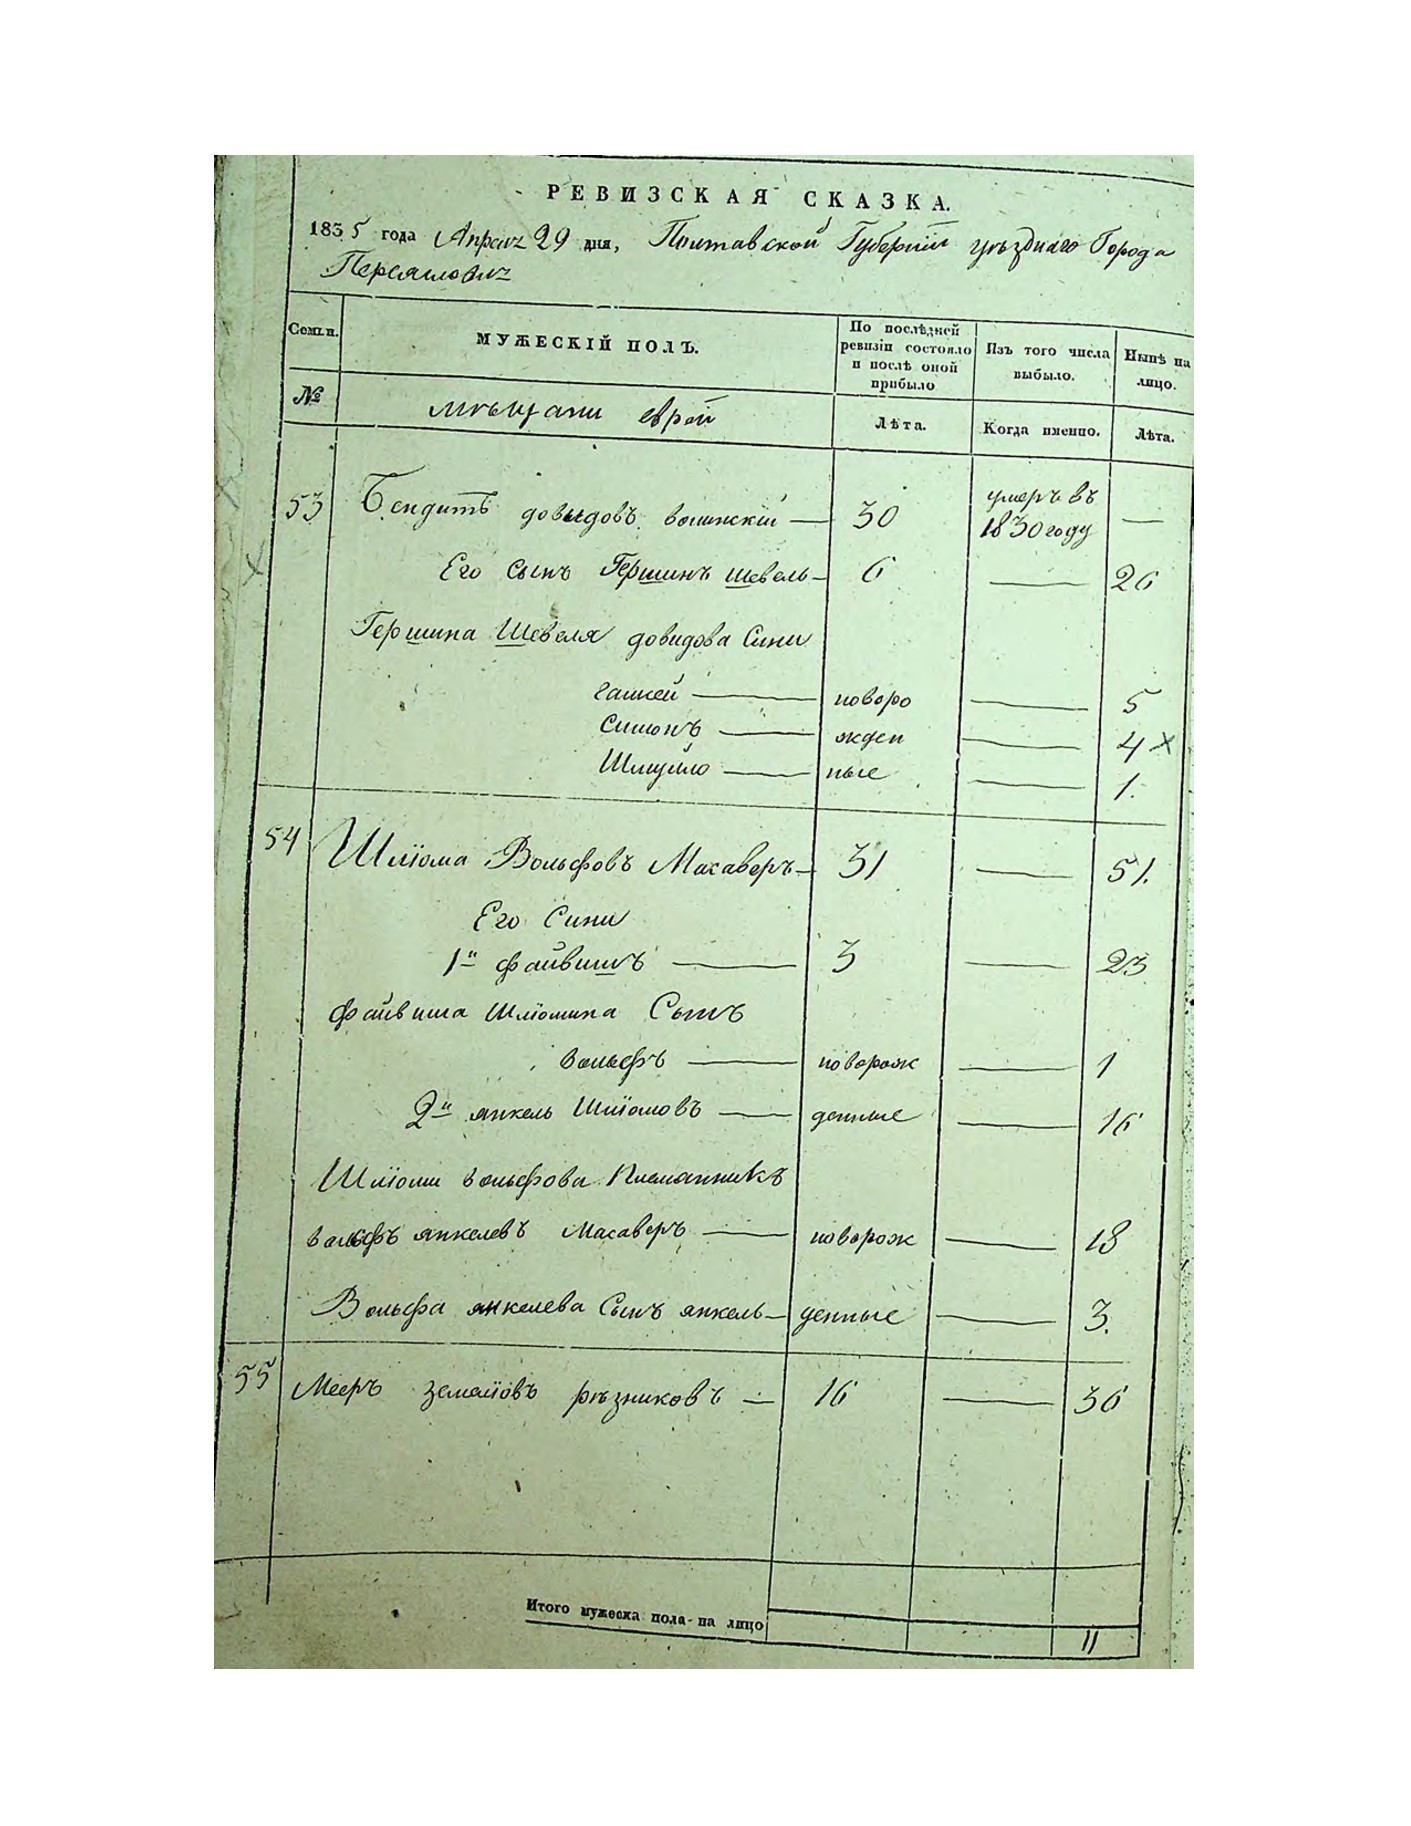 РЕВИЗСКАЯ СКАЗКА.
1835 года Апреля 29 дня, Полтавской Губернïи уѣзднаго Города
Переяславля
Семьи. МУЖЕСКIЙ ПОЛЪ. По послѣдней ревизiи состояло и послѣ оной прибыло Изъ того числа выбыло. Нынѣ на лицо.
№ мѣщани еврей Лѣта. Когда именно. Лѣта.
53 довидовъ воинскïй — 30 умеръ въ 1830 году —
Его Сынъ Гершинъ шевель — 6 — 26
Гершина Шевеля довидова Сини
— новоро — 5
Симонъ — жден — 4 х
Шмуйло — ные — 1.
54 Шлïома Вольфовъ Махаверъ — 31 — 51.
Его Сини
1й файвишъ — 3 — 23
файвиша Шлïомина Сынъ
вольфъ — новорож — 1
2й янкель Шлïомовъ — денные — 16
Шлïоми вольфова Племянникъ
вольфъ янкелевъ Махаверъ — новорож — 18
Вольфа янкелева Сынъ янкель — денные — 3.
55 Мееръ рѣзниковъ — 16 — 36
Итого мужеска пола на лицо 11